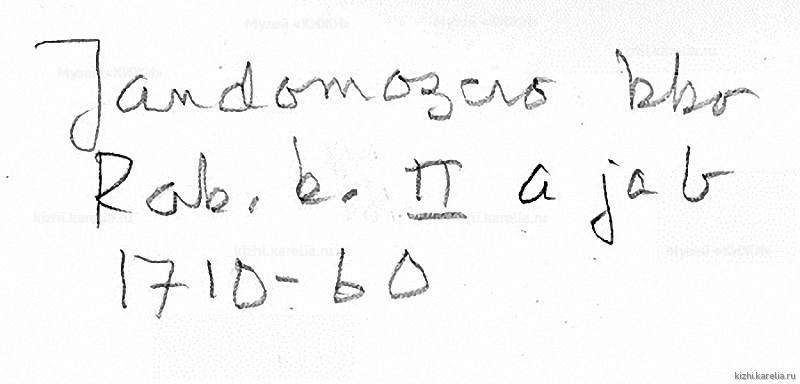 Музей «КИЖИ»
Музей «КИЖИ»
kizhi.karelia.ru
Музей «КИЖИ»
Jandomozero kko
Rab. k. II a ja b
kizhi.karelia.ru
kizhi.karelia.ru
1710-60
kizhi.karelia.ru
Музей «КИЖИ»
kizhi.karelia.ru